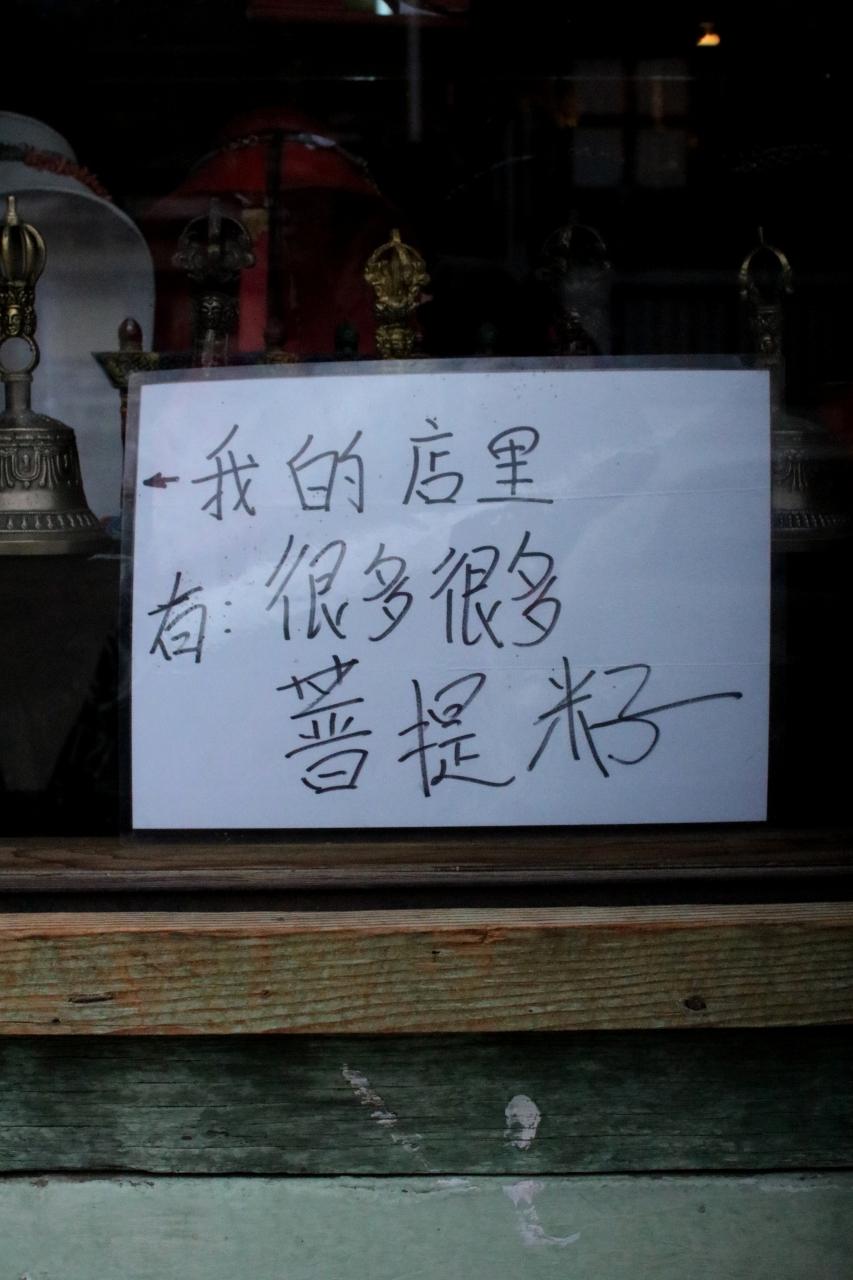 我的店里
有：很多很多
菩提籽